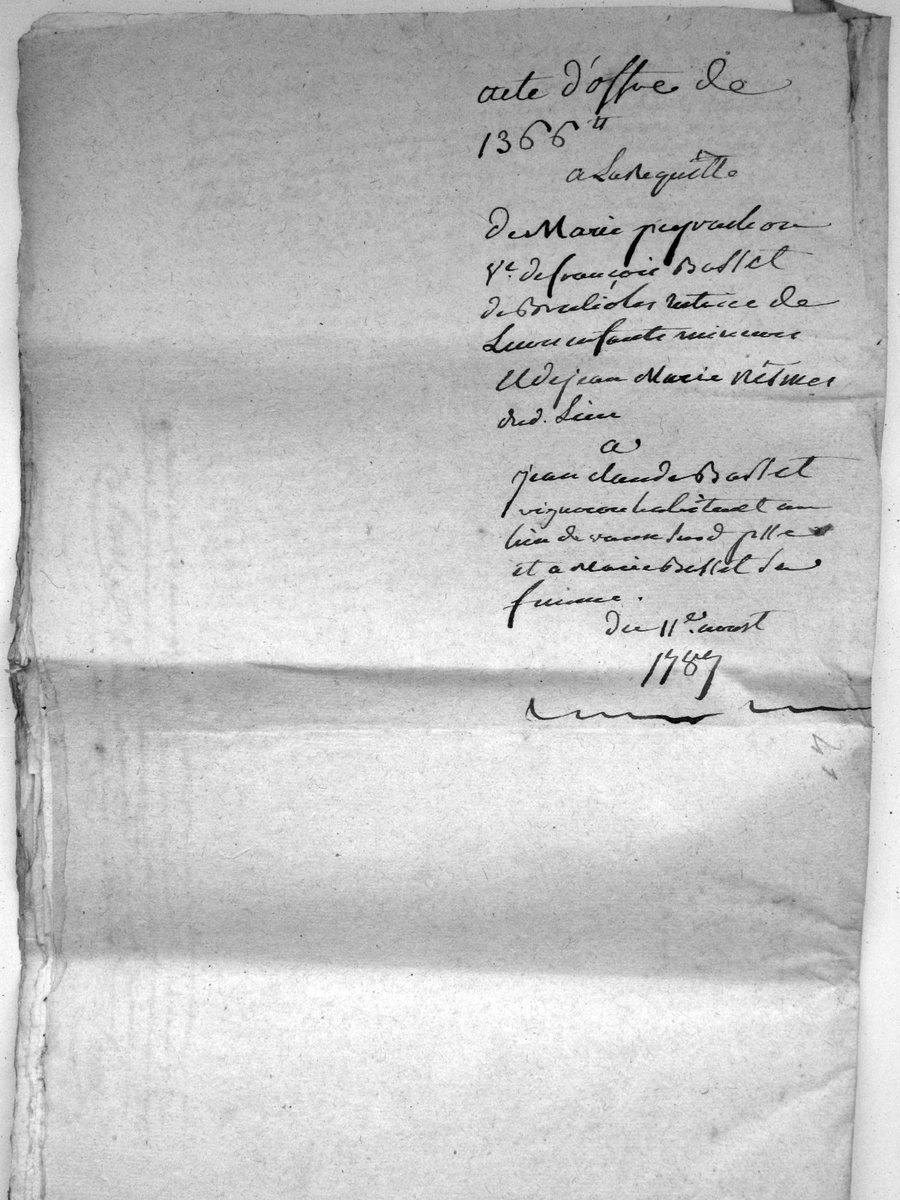 acte d'offre de
1366 ₶
a La Requette
de Marie peyrachon
Ve. de françois Basset
de Brulioles tutrice de
Leurs enfants mineurs
et de jean Marie
dud. Lieu
a
jean claude Basset
vigneron habitant au
lieu de sus d. psse
et a Marie Basset sa
femme.
du 11e. aoust
1787